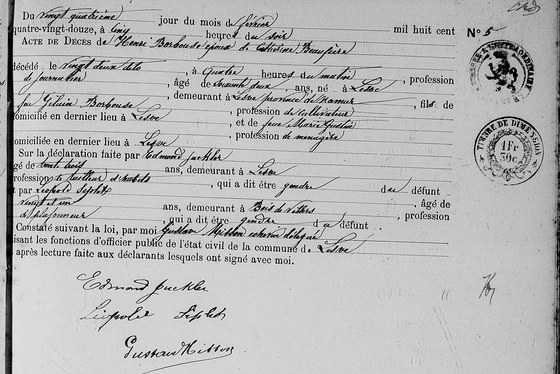 Du vingt quatrième jour du mois de février mil huit cent
quatre-vingt-douze, à cinq heures du soir N° 5
ACTE DE DÉCÈS de Henri Barbouse époux de Catherine
décédé le vingt deux dito à quatre heures du matin, profession
de journalier, âgé de soixante deux ans, né à Lesve
, demeurant à Lesve province de Namur, fils de
feu Barbouse, profession de cultivateur
domicilié en dernier lieu à Lesve et de feue Marie
, profession de ménagère
domiciliée en dernier lieu à Lesve
Sur la déclaration faite par Edmond Juckler
âgé de trente ans, demeurant à Lesve
profession de d'habits, qui a dit être gendre du défunt
et par Léopold Siplet, âgé de
vingt et un ans, demeurant à Bois de Villers, profession
de plafonneur, qui a dit être gendre du défunt.
Constaté suivant la loi, par moi Gustave Misson échevin délégué
faisant les fonctions d'officier public de l'état civil de la commune de Lesve
après lecture faite aux déclarants lesquels ont signé avec moi.
Edmond Juckler
Léopold Siplet
Gustave Misson
TIMBRE DE DIMENSION
1 Fr